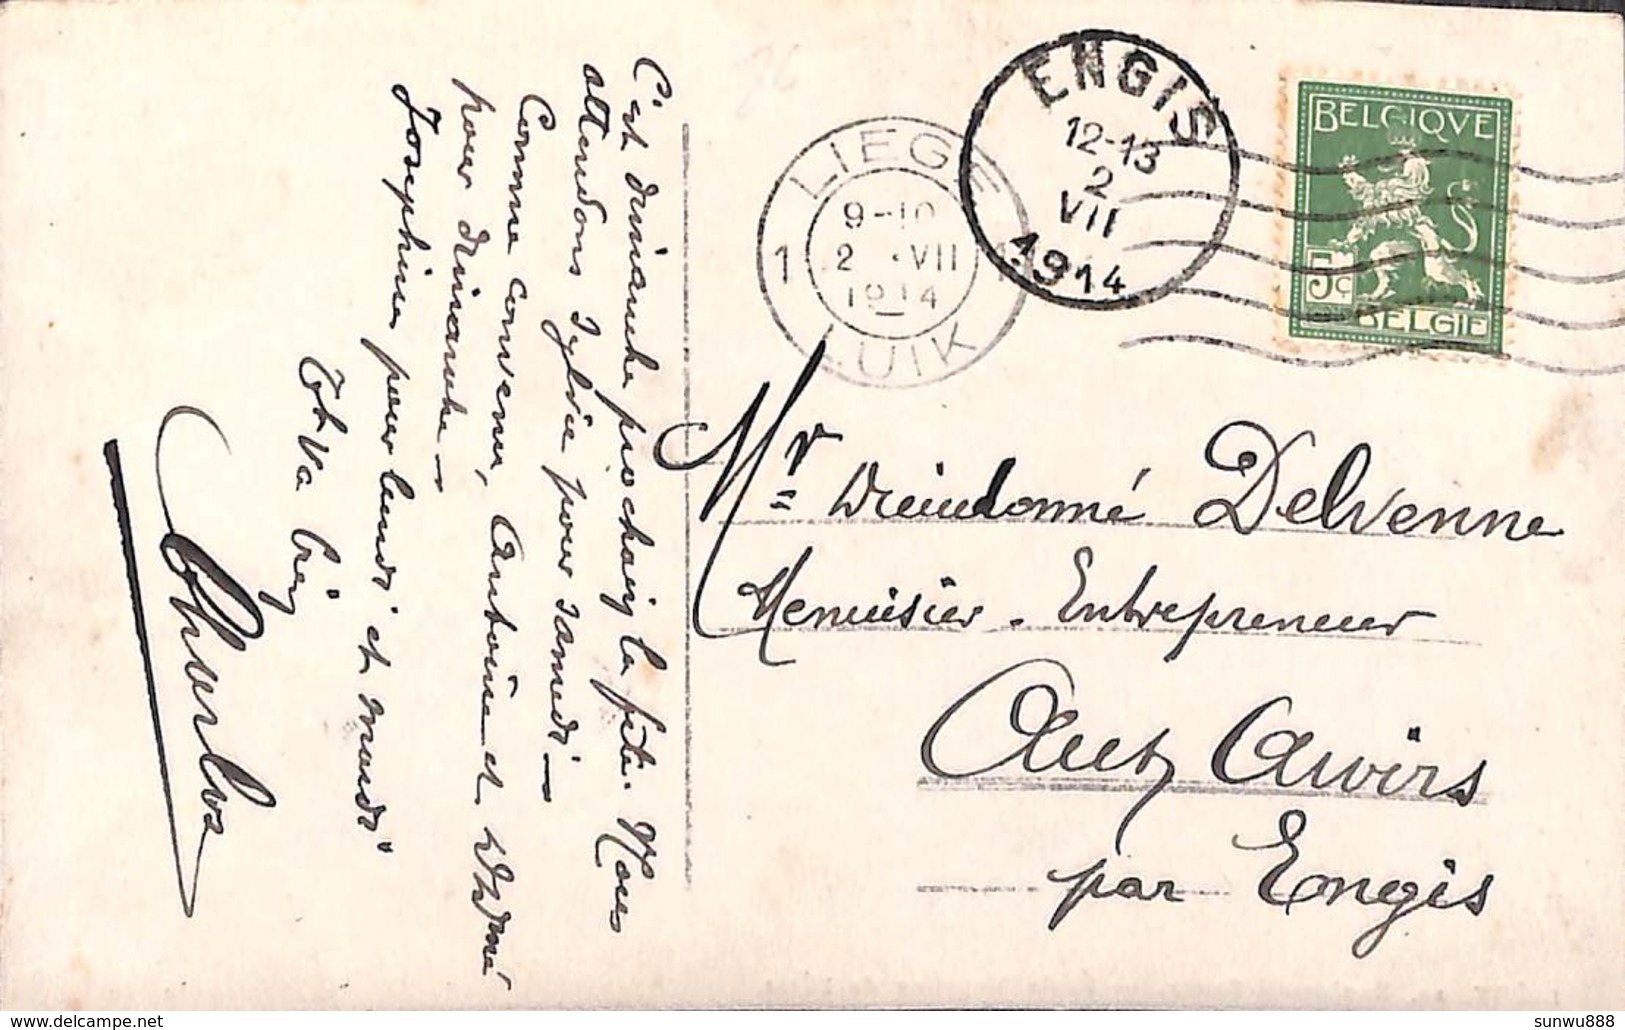 C'est dimanche prochain la fête. Nous
attendons Iglée pour samedi —
Comme convenu, Antoine et Désiré
pour dimanche —
Joséphine pour lundi et mardi
Charles
LIEGE
1
9-10
2 VII
1914
LUIK
ENGIS
12-13
2
VII
1914
BELGIQUE
5c
BELGIË
Mr Dieudonné Delvenne
Menuisier - Entrepreneur
Aux Awirs
par Engis
www.delcampe.net
sunwu888